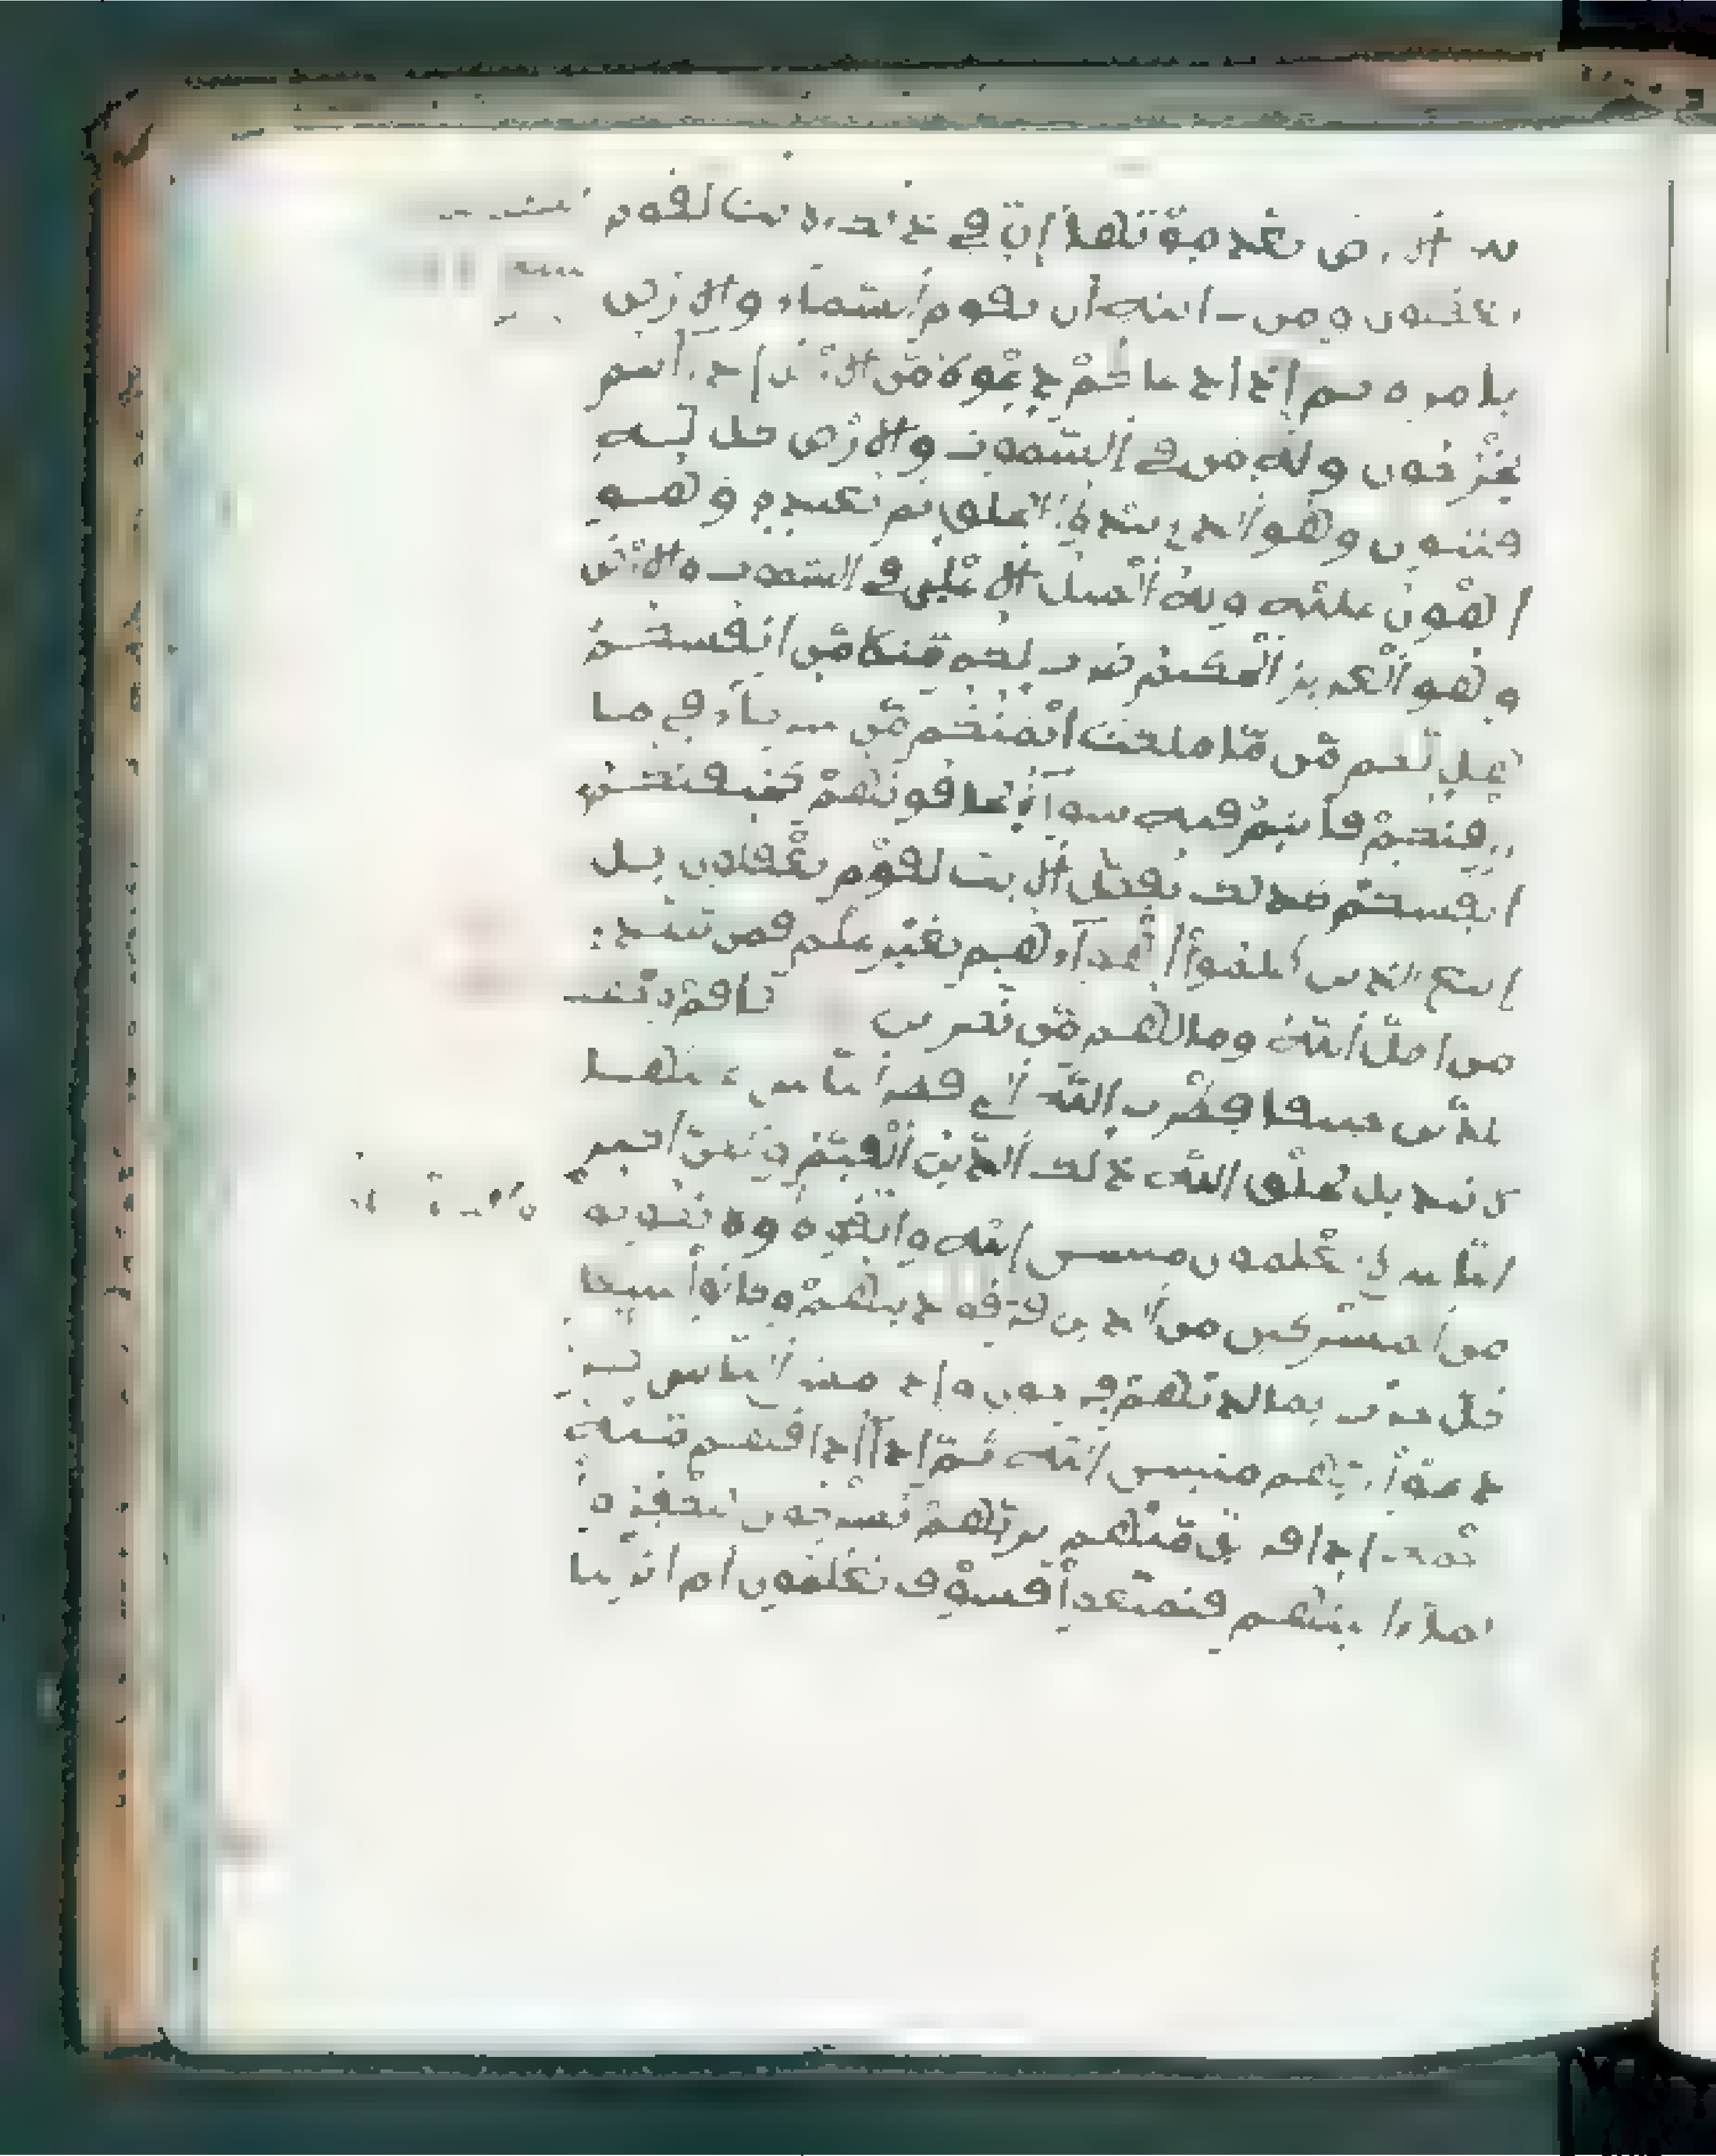 به الارض بعد موتها إن في ذلك لايت لقوم
يعقلون ومن ايته ان تقوم السماء والارض
بامره ثم إذا دعاكم دعوة من الارض إذا أنتم
تخرجون وله من في السموت والارض كل له
قنتون وهو الذي يبدؤا الخلق ثم يعيده وهو
اهون عليه وله المثل الاعلى في السموت والارض
وهو العزيز الحكيم ضرب لكم مثلا من انفسكم
هل لكم من ما ملكت ايمنكم من شركاء في ما
رزقنكم فأنتم فيه سواء تخافونهم كخيفتكم
انفسكم كذلك نفصل الايت لقوم يعقلون بل
اتبع الذين ظلموا أهواءهم بغير علم فمن يهدي
من اضل الله وما لهم من نصرين فاقم وجهك
للدين حنيفا فطرت الله التي فطر الناس عليها
لا تبديل لخلق الله ذلك الدين القيم ولكن أكثر
الناس لا يعلمون منيبين إليه واتقوه ولا تكونوا
من المشركين من الذين فرقوا دينهم وكانوا شيعا
كل حزب بما لديهم فرحون وإذا مس الناس ضر
دعوا ربهم منيبين إليه ثم إذا أذاقهم منه
رحمة إذا فريق منهم بربهم يشركون ليكفروا
بما ءاتينهم فتمتعوا فسوف تعلمون أم انزلنا